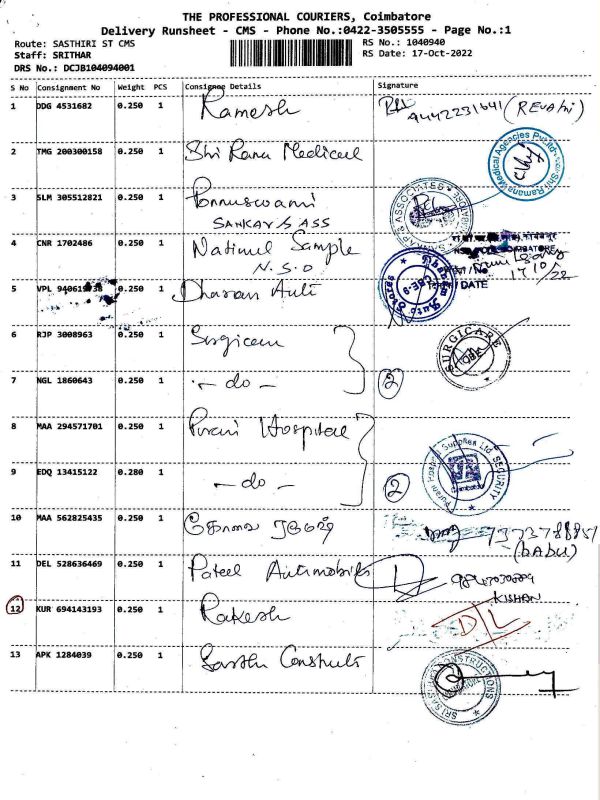 THE PROFESSIONAL COURIERS, Coimbatore
Delivery Runsheet - CMS - Phone No.:0422-3505555 - Page No.:1
Route: SASTHIRI ST CMS
Staff: SRITHAR
DRS No.: DCJB104094001
RS No.: 1040940
RS Date: 17-Oct-2022
S No Consignment No Weight PCS Consignee Details Signature
1 DDG 4531682 0.250 1 Ramesh (REVAthi)
2 TMG 200300158 0.250 1 Shri Rama Medical
3 SLM 305512821 0.250 1 Ponnuswami
SANKAR & ASS
SANKAR & ASSOCIATES
4 CNR 1702486 0.250 1 National Sample
N.S.O
COIMBATORE
17/10/22
/DATE
5 VPL 0.250 1 Dharan Auto
Dharan Auto Stores
CBE-9
6 RJP 3008963 0.250 1 Surgicare
SURGICARE
7 NGL 1860643 0.250 1 - do - 2
8 MAA 294571701 0.250 1 Purani Hospital
Purani Hospital Supplies Ltd SECURITY
9 EDQ 13415122 0.280 1 - do - 2
10 MAA 562825435 0.250 1
(BABU)
11 DEL 528636469 0.250 1 Pateel Automobiles
KISHAN
12 KUR 694143193 0.250 1 Rakesh D/L
13 APK 1284039 0.250 1